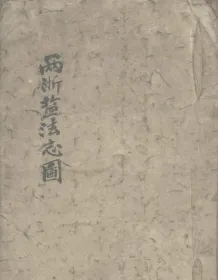 兩浙盐法志圖